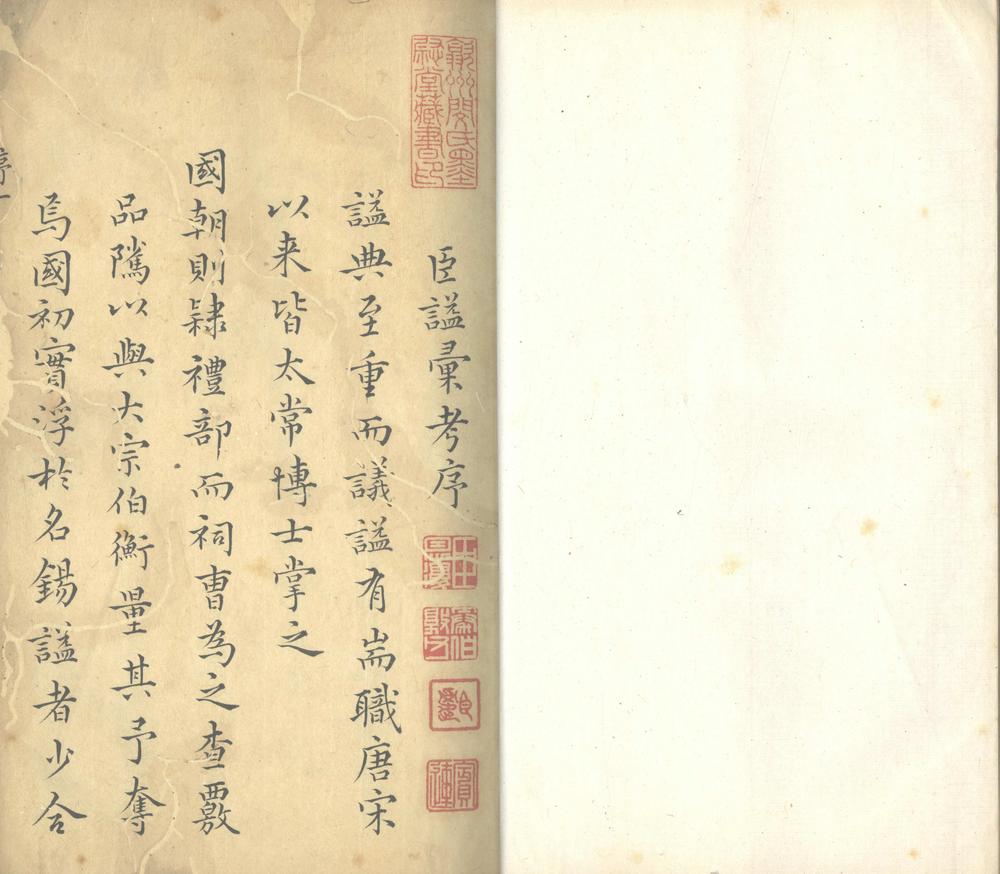 臣謚彙考序
謚典至重而議謚有耑職唐宋
以来皆太常博士掌之
國朝則隷禮部而祠曹為之查覈
品隲以與大宗伯衡量其予奪
焉國初實浮於名錫謚者少合
序一
堂藏書印